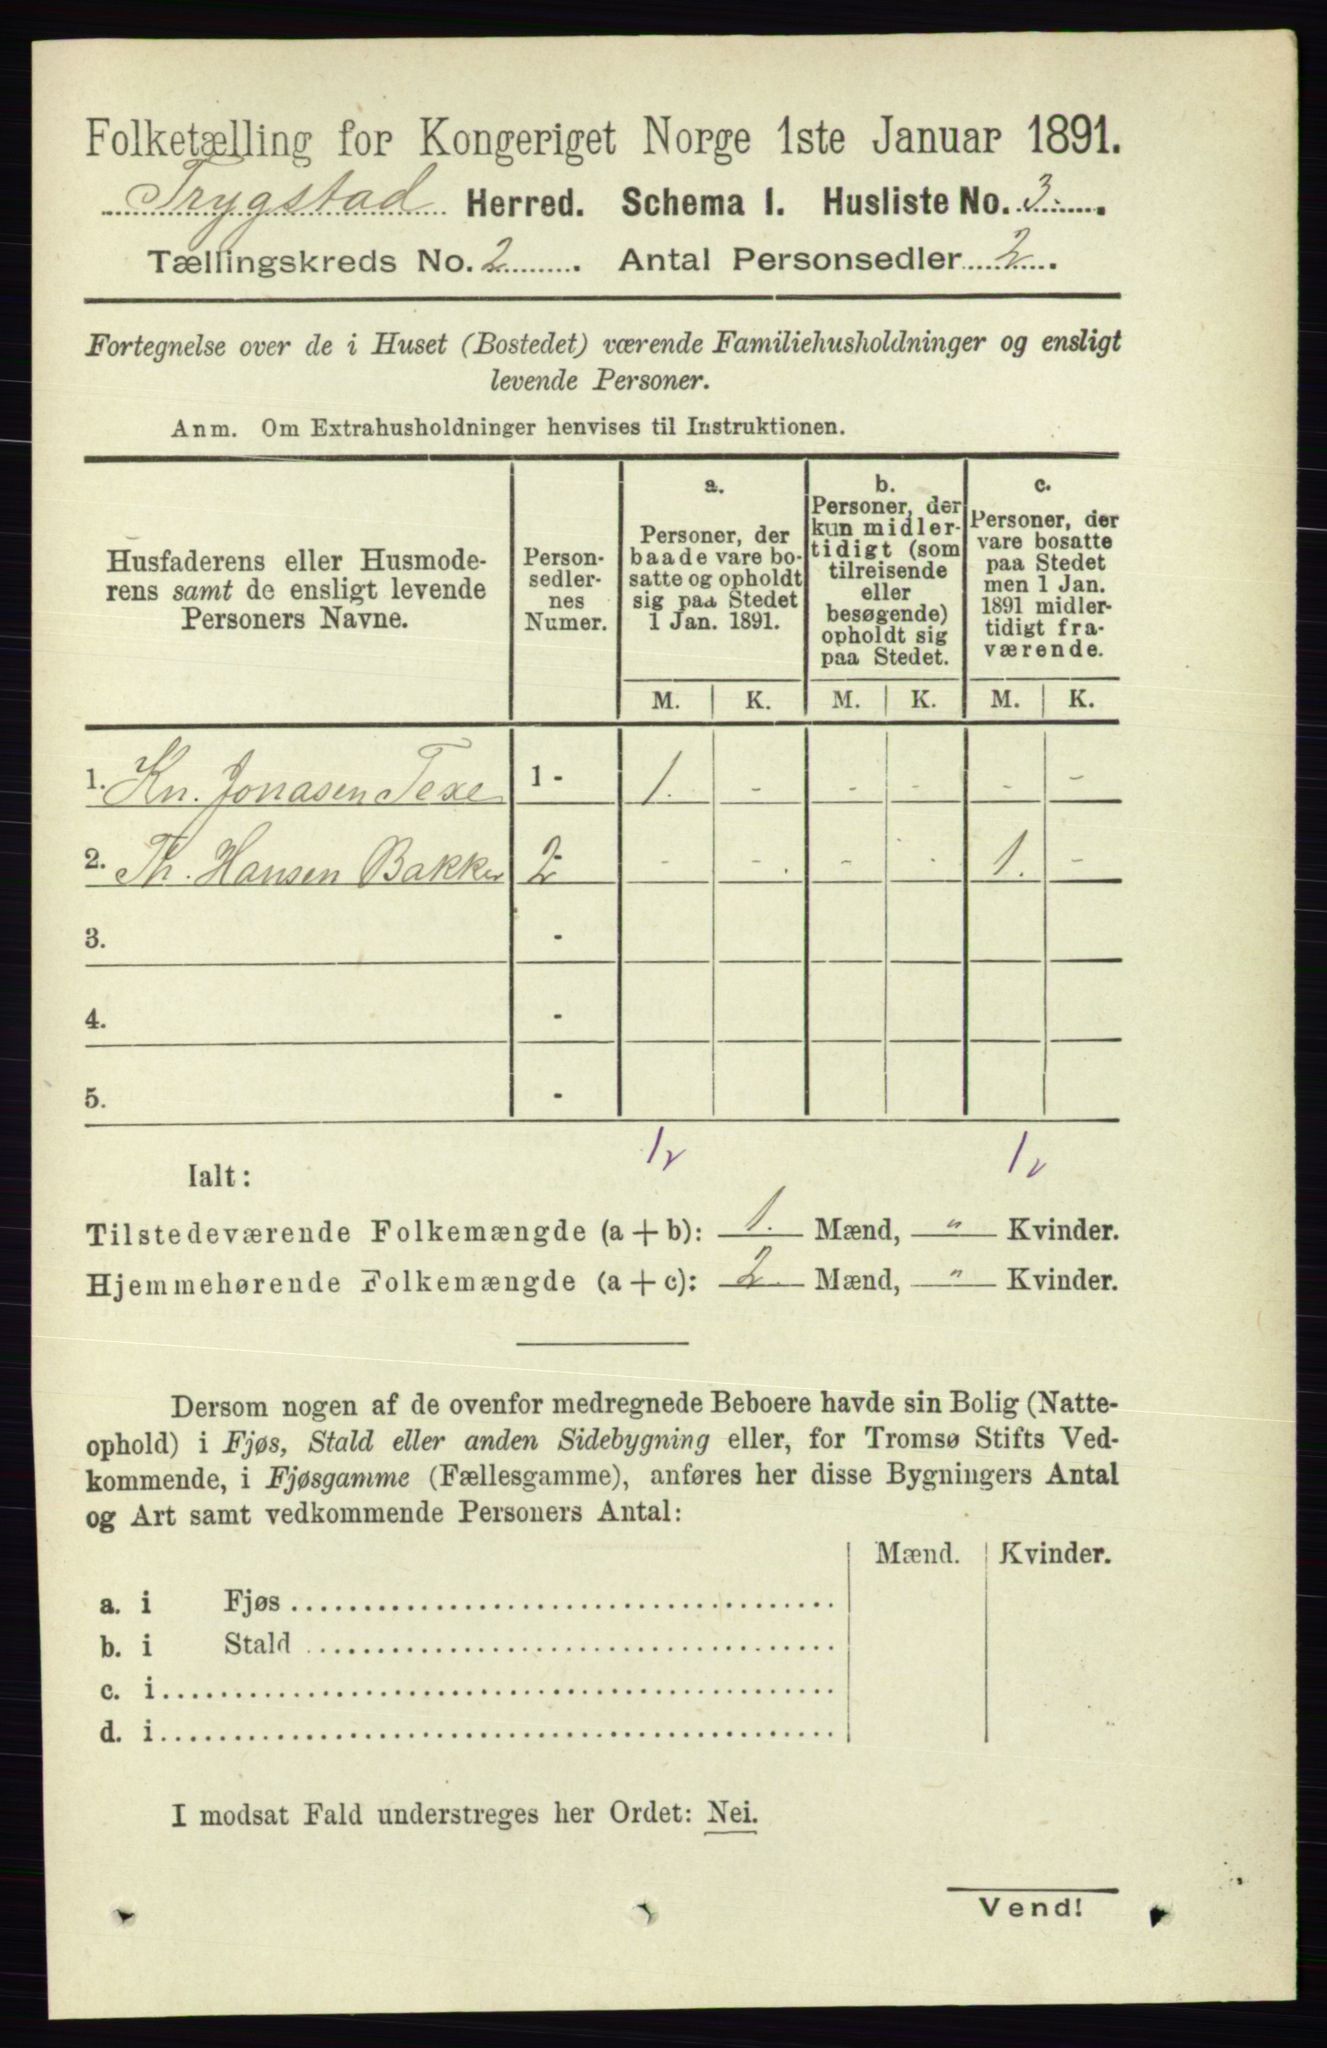 Folketælling for Kongeriget Norge 1ste Januar 1891.
Trygstad Herred. Schema 1. Husliste No. 3.
Tællingskreds No. 2. Antal Personsedler 2.
Fortegnelse over de i Huset (Bostedet) værende Familiehusholdninger og ensligt
levende Personer.
Anm. Om Extrahusholdninger henvises til Instruktionen.
Husfaderens eller Husmode-
rens samt de ensligt levende
Personers Navne.
Person-
sedler-
nes
Numer.
a.
Personer, der
baade vare bo-
satte og opholdt
sig paa Stedet
1 Jan. 1891.
b.
Personer, der
kun midler-
tidigt (som
tilreisende
eller
besøgende)
opholdt sig
paa Stedet.
c.
Personer, der
vare bosatte
paa Stedet
men 1 Jan.
1891 midler-
tidigt fra-
værende.
M. K. M. K. M. K.
1. Kn. Jonasen Texe 1 - 1. - - - - -
2. Th. Hansen Bakke 2 - - - - - 1. -
3. -
4. -
5. -
1 1
Ialt:
Tilstedeværende Folkemængde (a + b): 1. Mænd, " Kvinder.
Hjemmehørende Folkemængde (a + c): 2 Mænd, " Kvinder.
Dersom nogen af de ovenfor medregnede Beboere havde sin Bolig (Natte-
ophold) i Fjøs, Stald eller anden Sidebygning eller, for Tromsø Stifts Ved-
kommende, i Fjøsgamme (Fællesgamme), anføres her disse Bygningers Antal
og Art samt vedkommende Personers Antal:
Mænd. Kvinder.
a. i Fjøs
b. i Stald
c. i
d. i
I modsat Fald understreges her Ordet: Nei.
Vend!